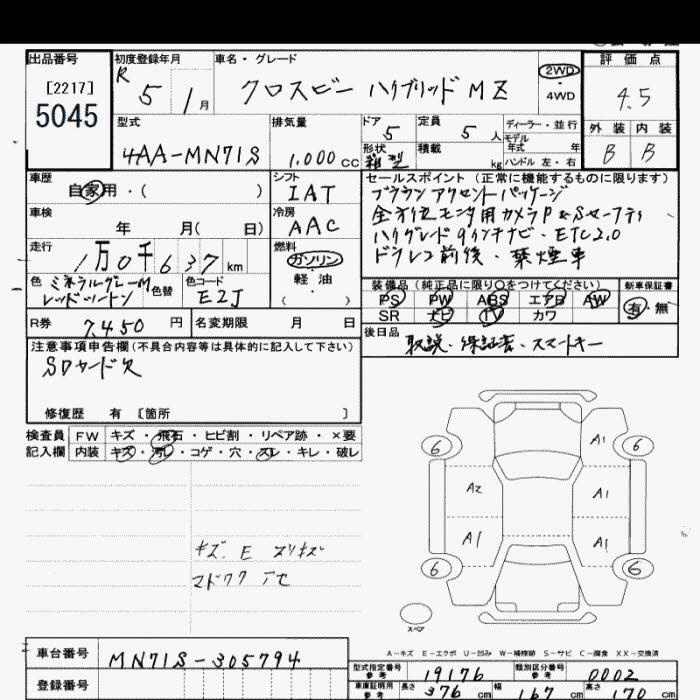 出品番号 初度登録年月 車名・グレード 評価点
[2217] R 5 1月 クロスビー ハイブリッド MZ 2WD・4WD 4.5
5045
型式 排気量 ドア 定員 ディーラー・並行 外装 内装
4AA-MN71S 1,000cc 5 5人 モデル年式 年 B B
形状 箱型 積載 kg ハンドル 左・右
車歴 シフト セールスポイント(正常に機能するものに限ります)
自家用・( ) IAT ブラウンアクセントパッケージ
車検 冷房 全方位モニタ用カメラP&Sセーフティ
年 月( 日) AAC ハイグレード9インチナビ・ETC2.0
走行 燃料 ドラレコ前後・禁煙車
1万0千637km ガソリン・軽油・( )
色 ミネラルグレーM 色替 色コード
レッドツートン EZJ
装備品(純正品に限り○をつけてください) 新車保証書
PS PW ABS エアB AW 有・無
SR ナビ TV カワ
R券 7,450円 名変期限 月 日
後日品 取説・保証書・スマートキー
注意事項申告欄(不具合内容等は具体的に記入して下さい)
SDカード欠
修復歴 有 [箇所 ]
検査員 FW キズ・飛石・ヒビ割・リペア跡・×要
記入欄 内装 キズ・汚レ・コゲ・穴・スレ・キレ・破レ
6 A1 6
A2 A1
A1 A1
6 6
キズ. E スリキズ
スペア
A-キズ E-エクボ U-凹み W-補修跡 S-サビ C-腐食 XX-交換済
車台番号 MN71S-305794
登録番号
型式指定番号 参考 19176 類別区分番号 参考 0002
車庫証明用 参考 長さ 376cm 幅 167cm 高さ 170cm